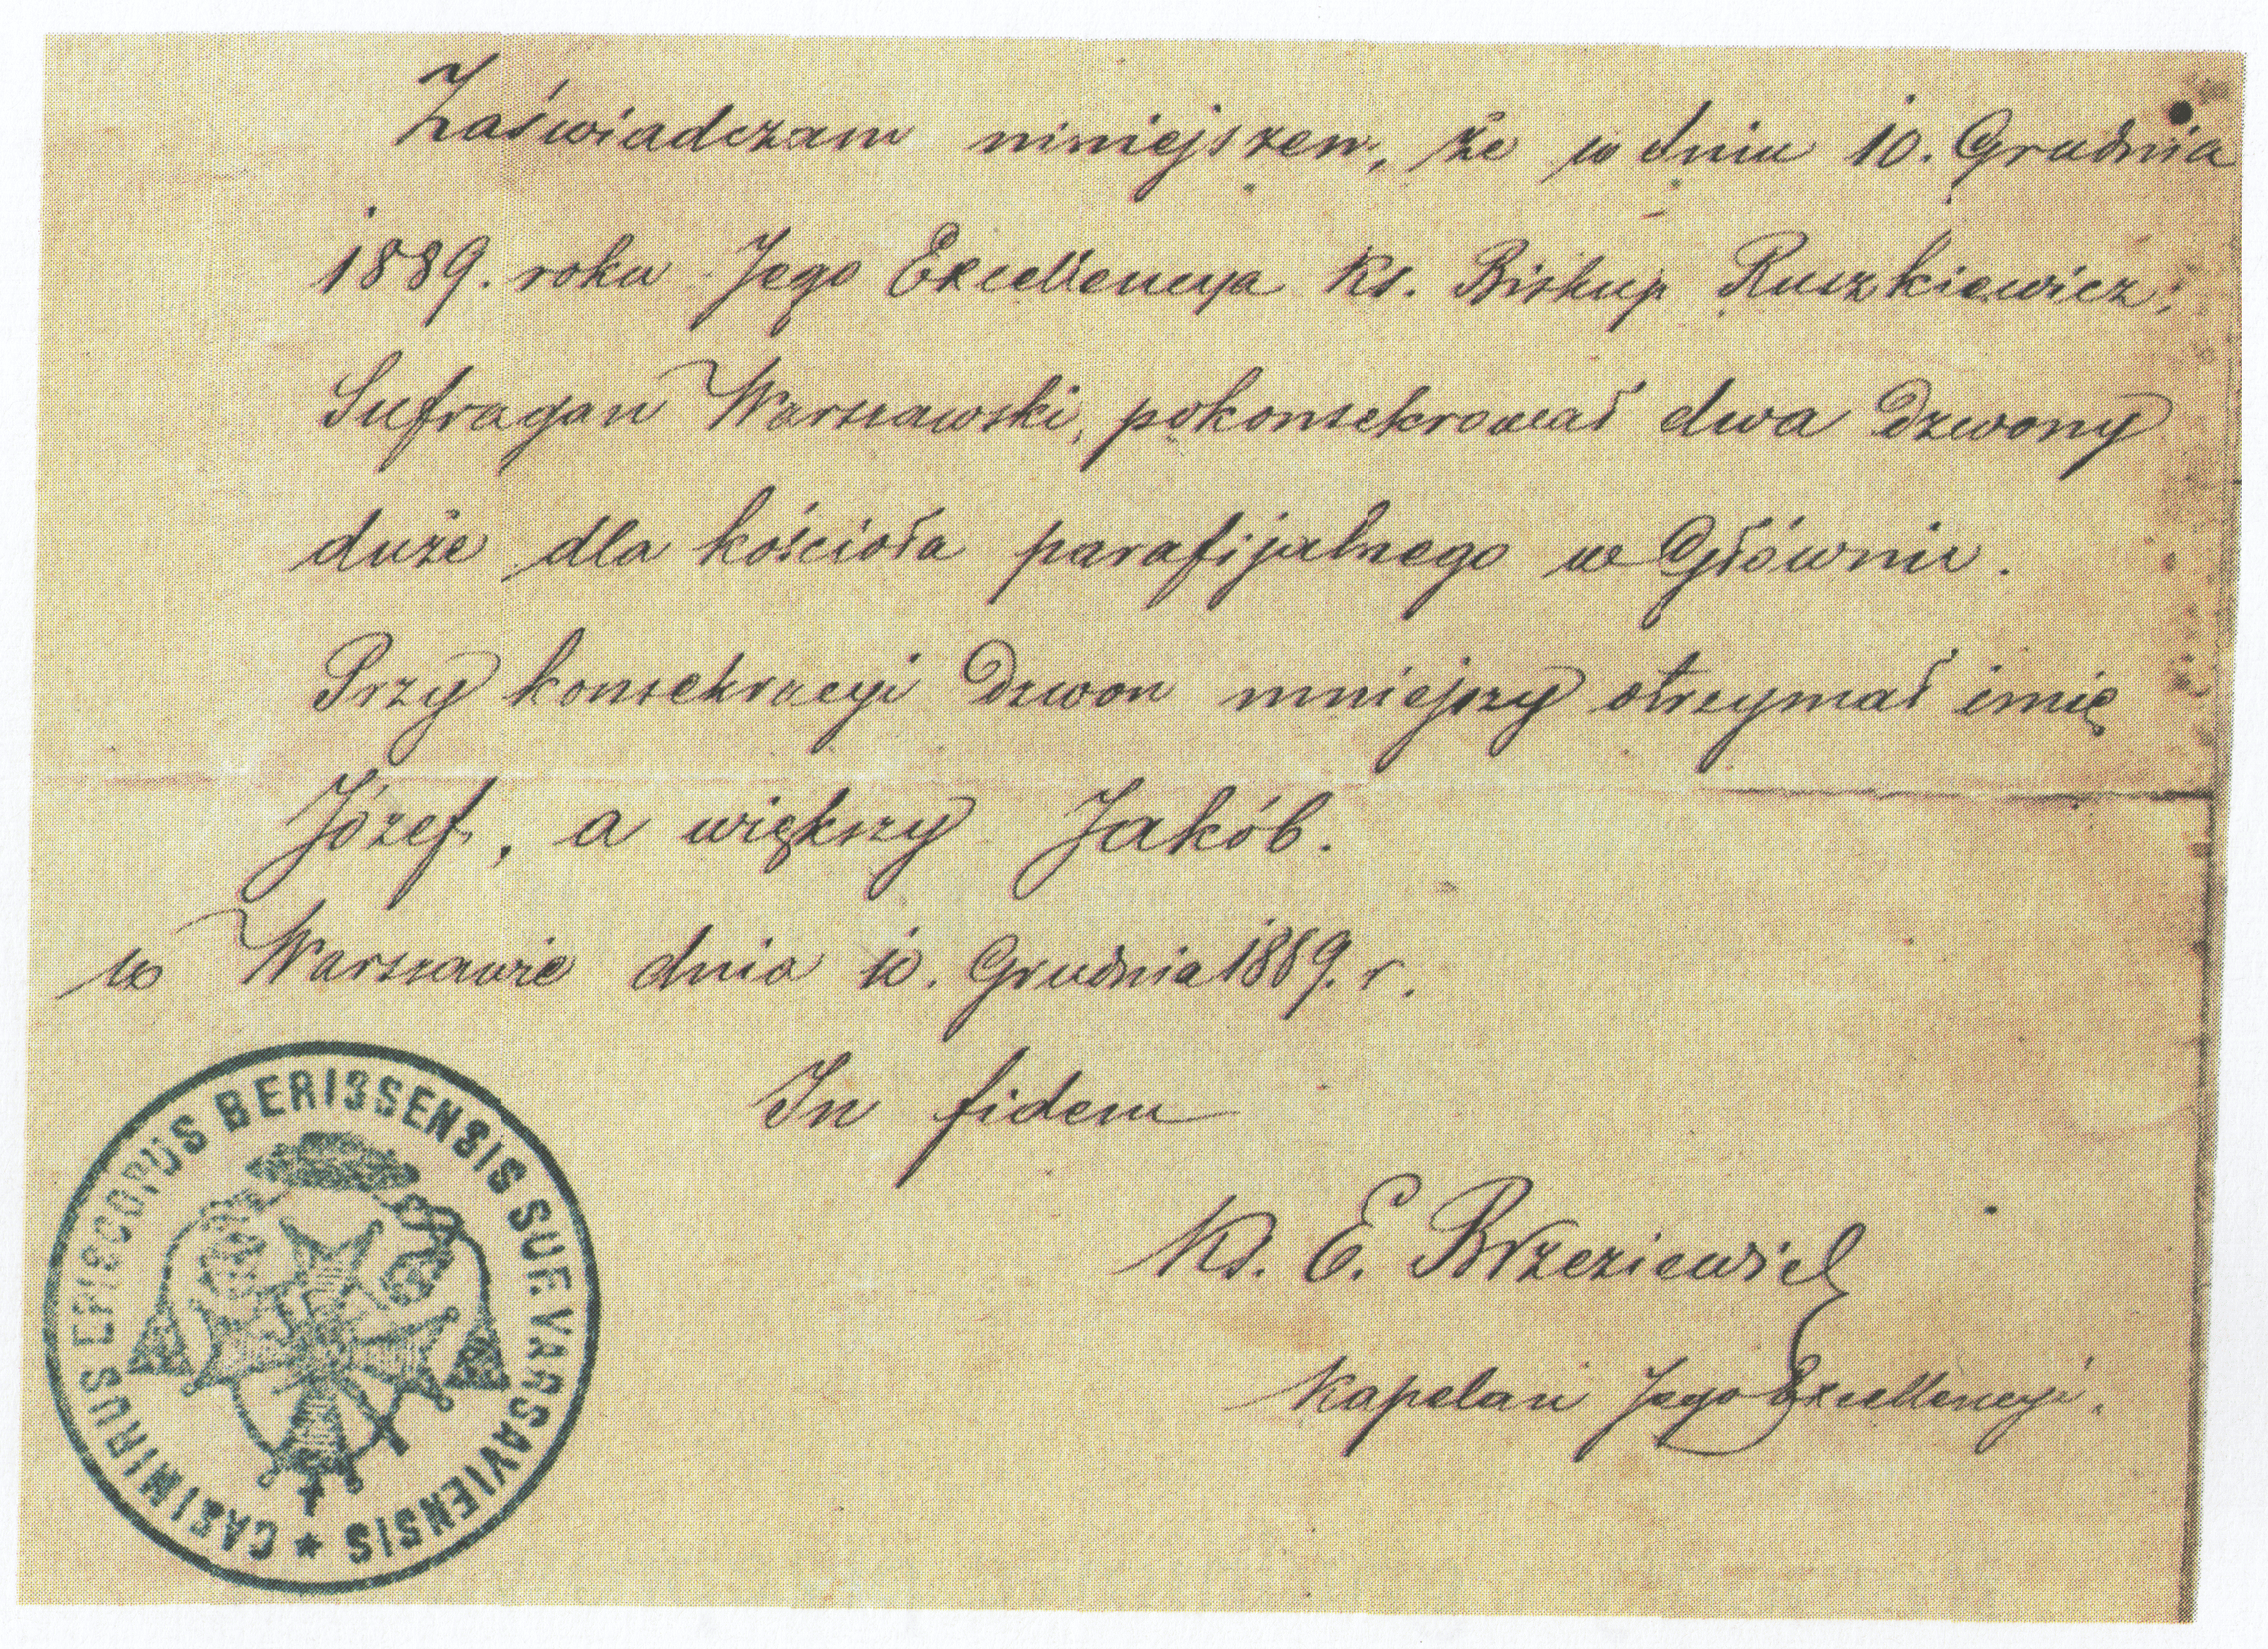 Zaświadczam niniejszem, że w dniu 10. Grudnia
1889. roku Jego Excellencya Ks. Biskup Ruszkiewicz,
Sufragan Warszawski, pokonsekrował dwa dzwony
duże dla kościoła parafijalnego w Głównie.
Przy konsekracyi dzwon mniejszy otrzymał imię
Józef, a większy Jakób.
w Warszawie dnia 10. Grudnia 1889. r.
In fidem
Ks. E. Brzeziewicz
Kapelan Jego Excellencyi.
CASIMIRUS EPISCOPUS BERISSENSIS SUF. VARSAVIENSIS *